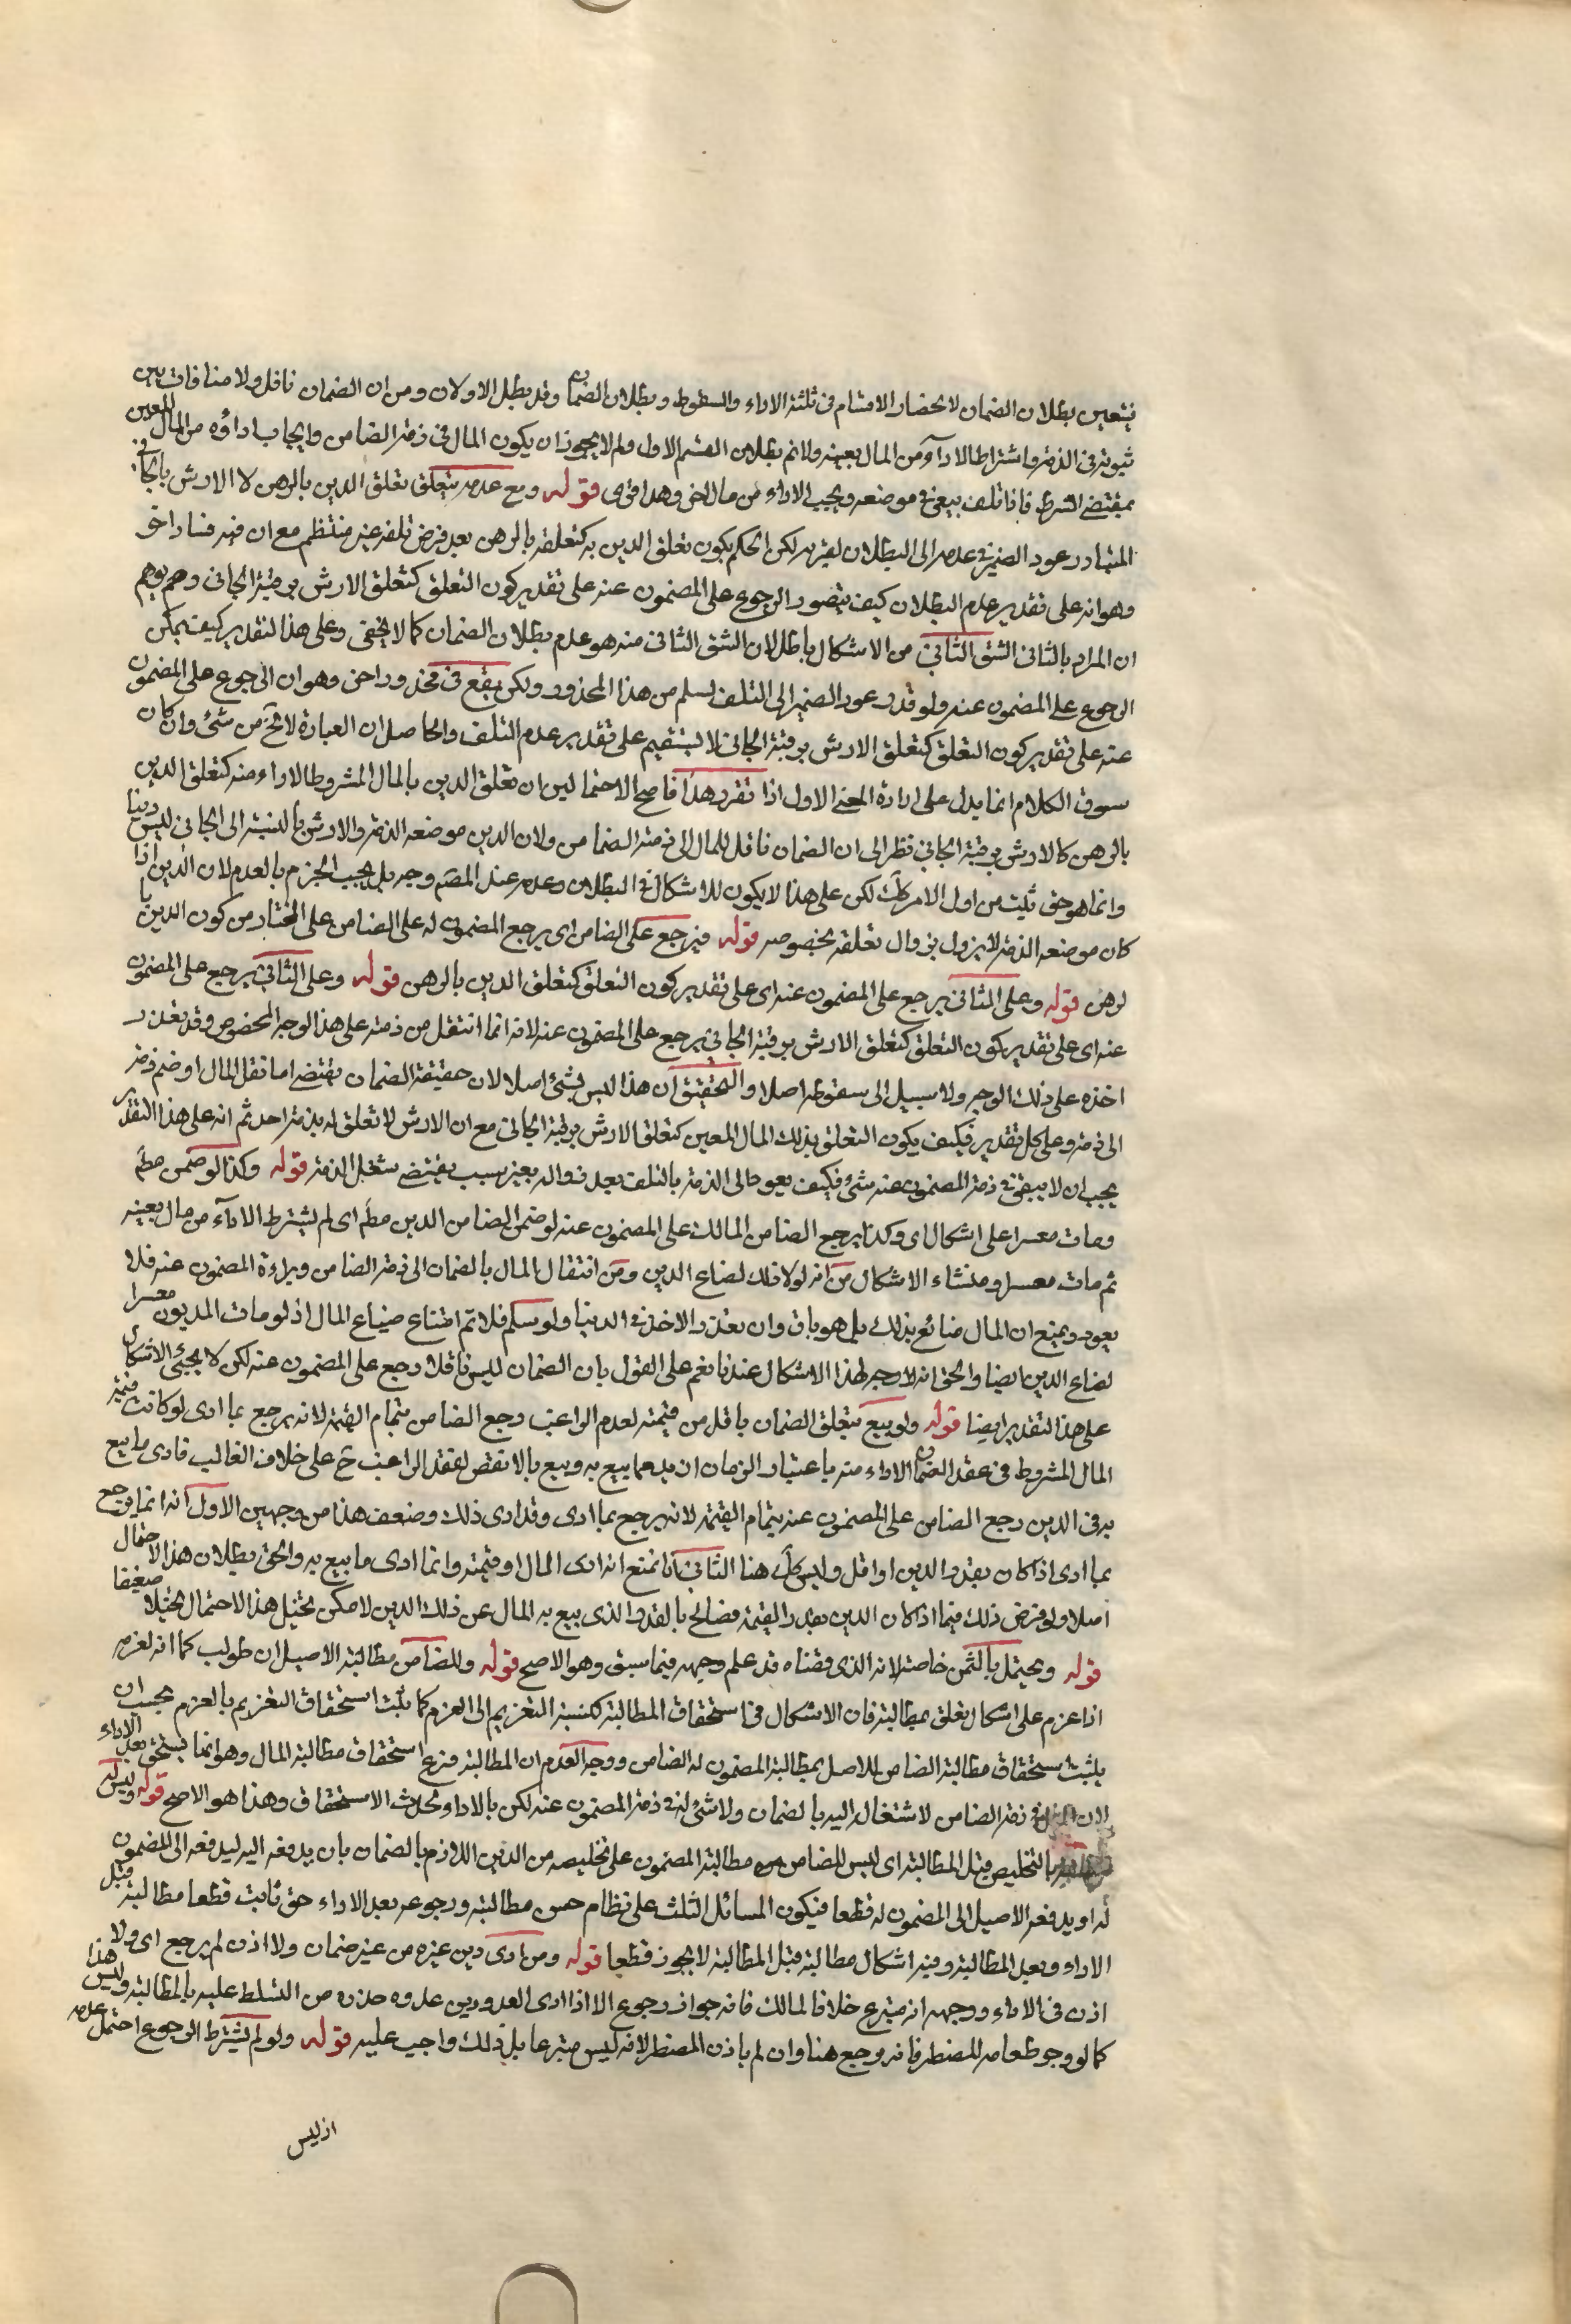 فيتعين بطلان الضمان لانحصار الاقسام فى ثلثة الاداء والسقوط وبطلان الضمان وقد بطل الاولان ومن ان الضمان ناقل ولا منافات بين
ثبوته فى الذمة واشتراط الاداء من المال بعينه ولانم بطلان القسم الاول ولم لا يجوز ان يكون المال فى ذمة الضامن وايجاب اداؤه من المال المعين
بمقتضى الشرط فاذا تلف بيقى فى موضعه ويجب الاداء من مال اخر وهذا قوى قوله ومع عدمه يتعلق تعلق الدين بالرهن لا الارش بالجانى
المتبادر عود الضمير فى عدمه الى البطلان لقربه لكن الحكم بكون تعلق الدين به كتعلقه بالرهن بعد فرض تلفه غير منتظم مع ان فيه فسادا اخر
وهو انه على تقدير عدم البطلان كيف يتصور الرجوع على المضمون عنه على تقدير كون التعلق كتعلق الارش برقبة الجانى وهم يوهم
ان المراد بالثانى الشق الثانى من الاشكال باطل لان الشق الثانى منه هو عدم بطلان الضمان كما لا يخفى وعلى هذا التقدير كيف يمكن
الرجوع على المضمون عنه ولو قدر عود الضمير الى التلف لسلم من هذا المحذور ولكن يقع فى محذور اخر وهو ان الرجوع على المضمون
عنه على تقدير كون التعلق كتعلق الارش برقبة الجانى لا يستقيم على تقدير عدم التلف والحاصل ان العبارة لا تخ من شئ وان كان
سوق الكلام انما يدل على ارادة المعنى الاول اذا تقرر هذا فاصح الاحتمالين ان تعلق الدين بالمال المشروط الاداء منه كتعلق الدين
بالرهن كالارش برقبة الجانى نظر الى ان الضمان ناقل للمال الى ذمة الضامن ولان الدين موضعه الذمة والارش بالنسبة الى الجانى ليس دينا
وانما هو حق ثبت من اول الامر كك لكن على هذا لا يكون للاشكال فى البطلان وعدمه عند المصم وجه بل يجب الجزم بالعدم لان الدين اذا
كان موضعه الذمة لا يزول بزوال تعلقه بخصوصه قوله فيرجع على الضامن اى يرجع المضمون له على الضامن على المختار من كون الدين با
لرهن قوله وعلى الثانى يرجع على المضمون عنه اى على تقدير كون التعلق كتعلق الدين بالرهن قوله وعلى الثانى يرجع على المضمون
عنه اى على تقدير كون التعلق كتعلق الارش برقبة الجانى يرجع على المضمون عنه لانه انما انتقل من ذمته على هذا الوجه المخصوص وقد تعذر
اخذه على ذلك الوجه ولا سبيل الى سقوطه اصلا والتحقيق ان هذا ليس بشئ اصلا لان حقيقة الضمان يقتضى اما نقل المال او ضم ذمة
الى ذمة وعلى كل تقدير فكيف يكون التعلق بذلك المال المعين كتعلق الارش برقبة الجانى مع ان الارش لا تعلق له بذمة احد ثم انه على هذا التقدير
يجب ان لا يبقى فى ذمة المضمون عنه شئ فكيف يعود الى الذمة بالتلف بعد زواله بغير سبب يقتضى شغل الذمة قوله وكذا لو ضمن مطم
ومات معسرا على اشكال اى وكذا يرجع الضامن المالك على المضمون عنه لو ضمن الضامن الدين مطم اى لم يشترط الاداء من مال بعينه
ثم مات معسرا ومنشاء الاشكال من انه لولا ذلك لضاع الدين ومن انتقال المال بالضمان الى ذمة الضامن وبراءة المضمون عنه فلا
يعود ويمنع ان المال ضائع بذلك بل هو باق وان تعذر الاخذ فى الدنيا ولو سلم فلا تم امتناع ضياع المال اذ لو مات المديون معسرا
لضاع الدين ايضا والحق انه لا وجه لهذا الاشكال عندنا نعم على القول بان الضمان ليس ناقلا رجع على المضمون عنه لكن لا يجئ الاشكال
على هذا التقدير ايضا قوله ولو بيع متعلق الضمان باقل من قيمته لعدم الراغب رجع الضامن بتمام القيمة لانه يرجع بما ادى لو كانت قيمة
المال المشروط فى عقد الضمان الاداء منه باعتبار الزمان ازيد مما بيع به وبيع بالانقص لفقد الراغب ح على خلاف الغالب فادى ما بيع
به فى الدين رجع الضامن على المضمون عنه بتمام القيمة لانه يرجع بما ادى وقد ادى ذلك وضعف هذا من وجهين الاول انه انما يرجع
بما ادى اذا كان بقدر الدين او اقل وليس كك هنا الثانى انا نمنع انه ادى المال او قيمته وانما ادى ما بيع به والحق بطلان هذا الاحتمال
اصلا ولو فرض ذلك فيما اذا كان الدين بقدر القيمة فصالح بالقدر الذى بيع به المال عن ذلك الدين لامكن تخيل هذا الاحتمال تخيلا ضعيفا
قوله ويحتمل بالثمن خاصة لانه الذى قضاه قد علم وجهه فيما سبق وهو الاصح قوله وللضامن مطالبة الاصيل ان طولب كما انه لغرمه
اذا غرم على اشكال تعلق بمطالبة فان الاشكال فى استحقاق المطالبة كنسبة التغريم الى الغرم كما يثبت استحقاق التغريم بالغرم يجب ان
يثبت استحقاق مطالبة الضامن للاصل بمطالبة المضمون له الضامن ووجه العدم ان المطالبة فرع استحقاق مطالبة المال وهو انما يستحق بعد الاداء
لان المال فى ذمة الضامن لاشتغاله اليه بالضمان ولا شئ له فى ذمة المضمون عنه لكن بالاداء يحدث الاستحقاق وهذا هو الاصح قوله وليس له
بالتخليص قبل المطالبة اى ليس للضامن مطالبة المضمون على تخليصه من الدين اللازم بالضمان بان يدفعه اليه ليدفعه الى المضمون
له او يدفعه الاصيل الى المضمون له قطعا فيكون المسائل الثلث على نظام حسن مطالبته ورجوعه بعد الاداء حق ثابت قطعا مطالبته قبل
الاداء وبعد المطالبة وفيه اشكال مطالبته قبل المطالبة لا يجوز قطعا قوله ومن ادى دين غيره من غير ضمان ولا اذن لم يرجع اى ولا
اذن فى الاداء ووجهه انه متبرع خلافا لمالك فانه جواز رجوع الا اذا ادى العدو دين عدوه حذره من التسلط عليه بالمطالبة وليس هذا
كما لو وجر طعامه للمضطر فانه رجع هنا وان لم ياذن المضطر لانه ليس متبرعا بل ذلك واجب عليه قوله ولو لم يشترط الرجوع احتمل عدمه
اذ ليس